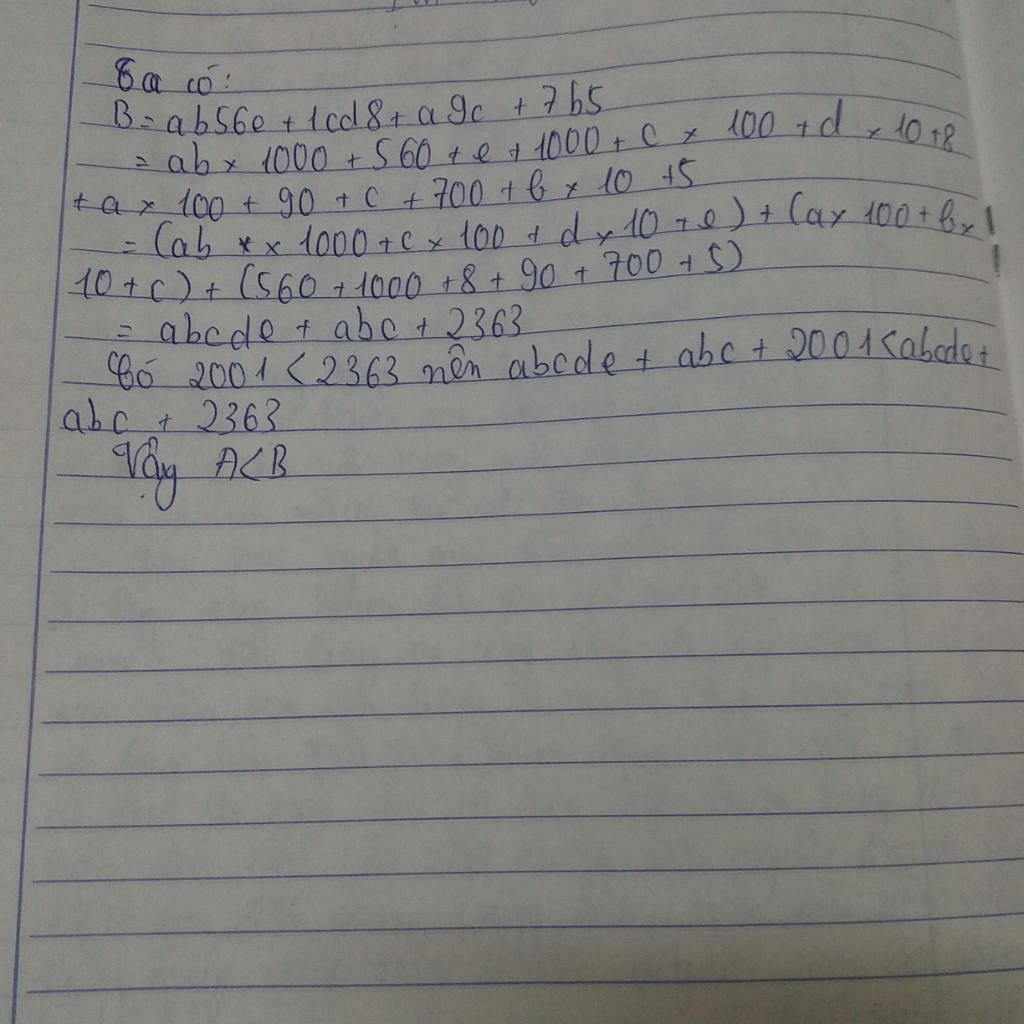 Ta có:
B = ab56e + 1cd8 + a9c + 7b5
= ab × 1000 + 560 + e + 1000 + c × 100 + d × 10 + 8
+ a × 100 + 90 + c + 700 + b × 10 + 5
= (ab × 1000 + c × 100 + d × 10 + e) + (a × 100 + b ×
10 + c) + (560 + 1000 + 8 + 90 + 700 + 5)
= abcde + abc + 2363
Có 2001 < 2363 nên abcde + abc + 2001 < abcde +
abc + 2363
Vậy A < B